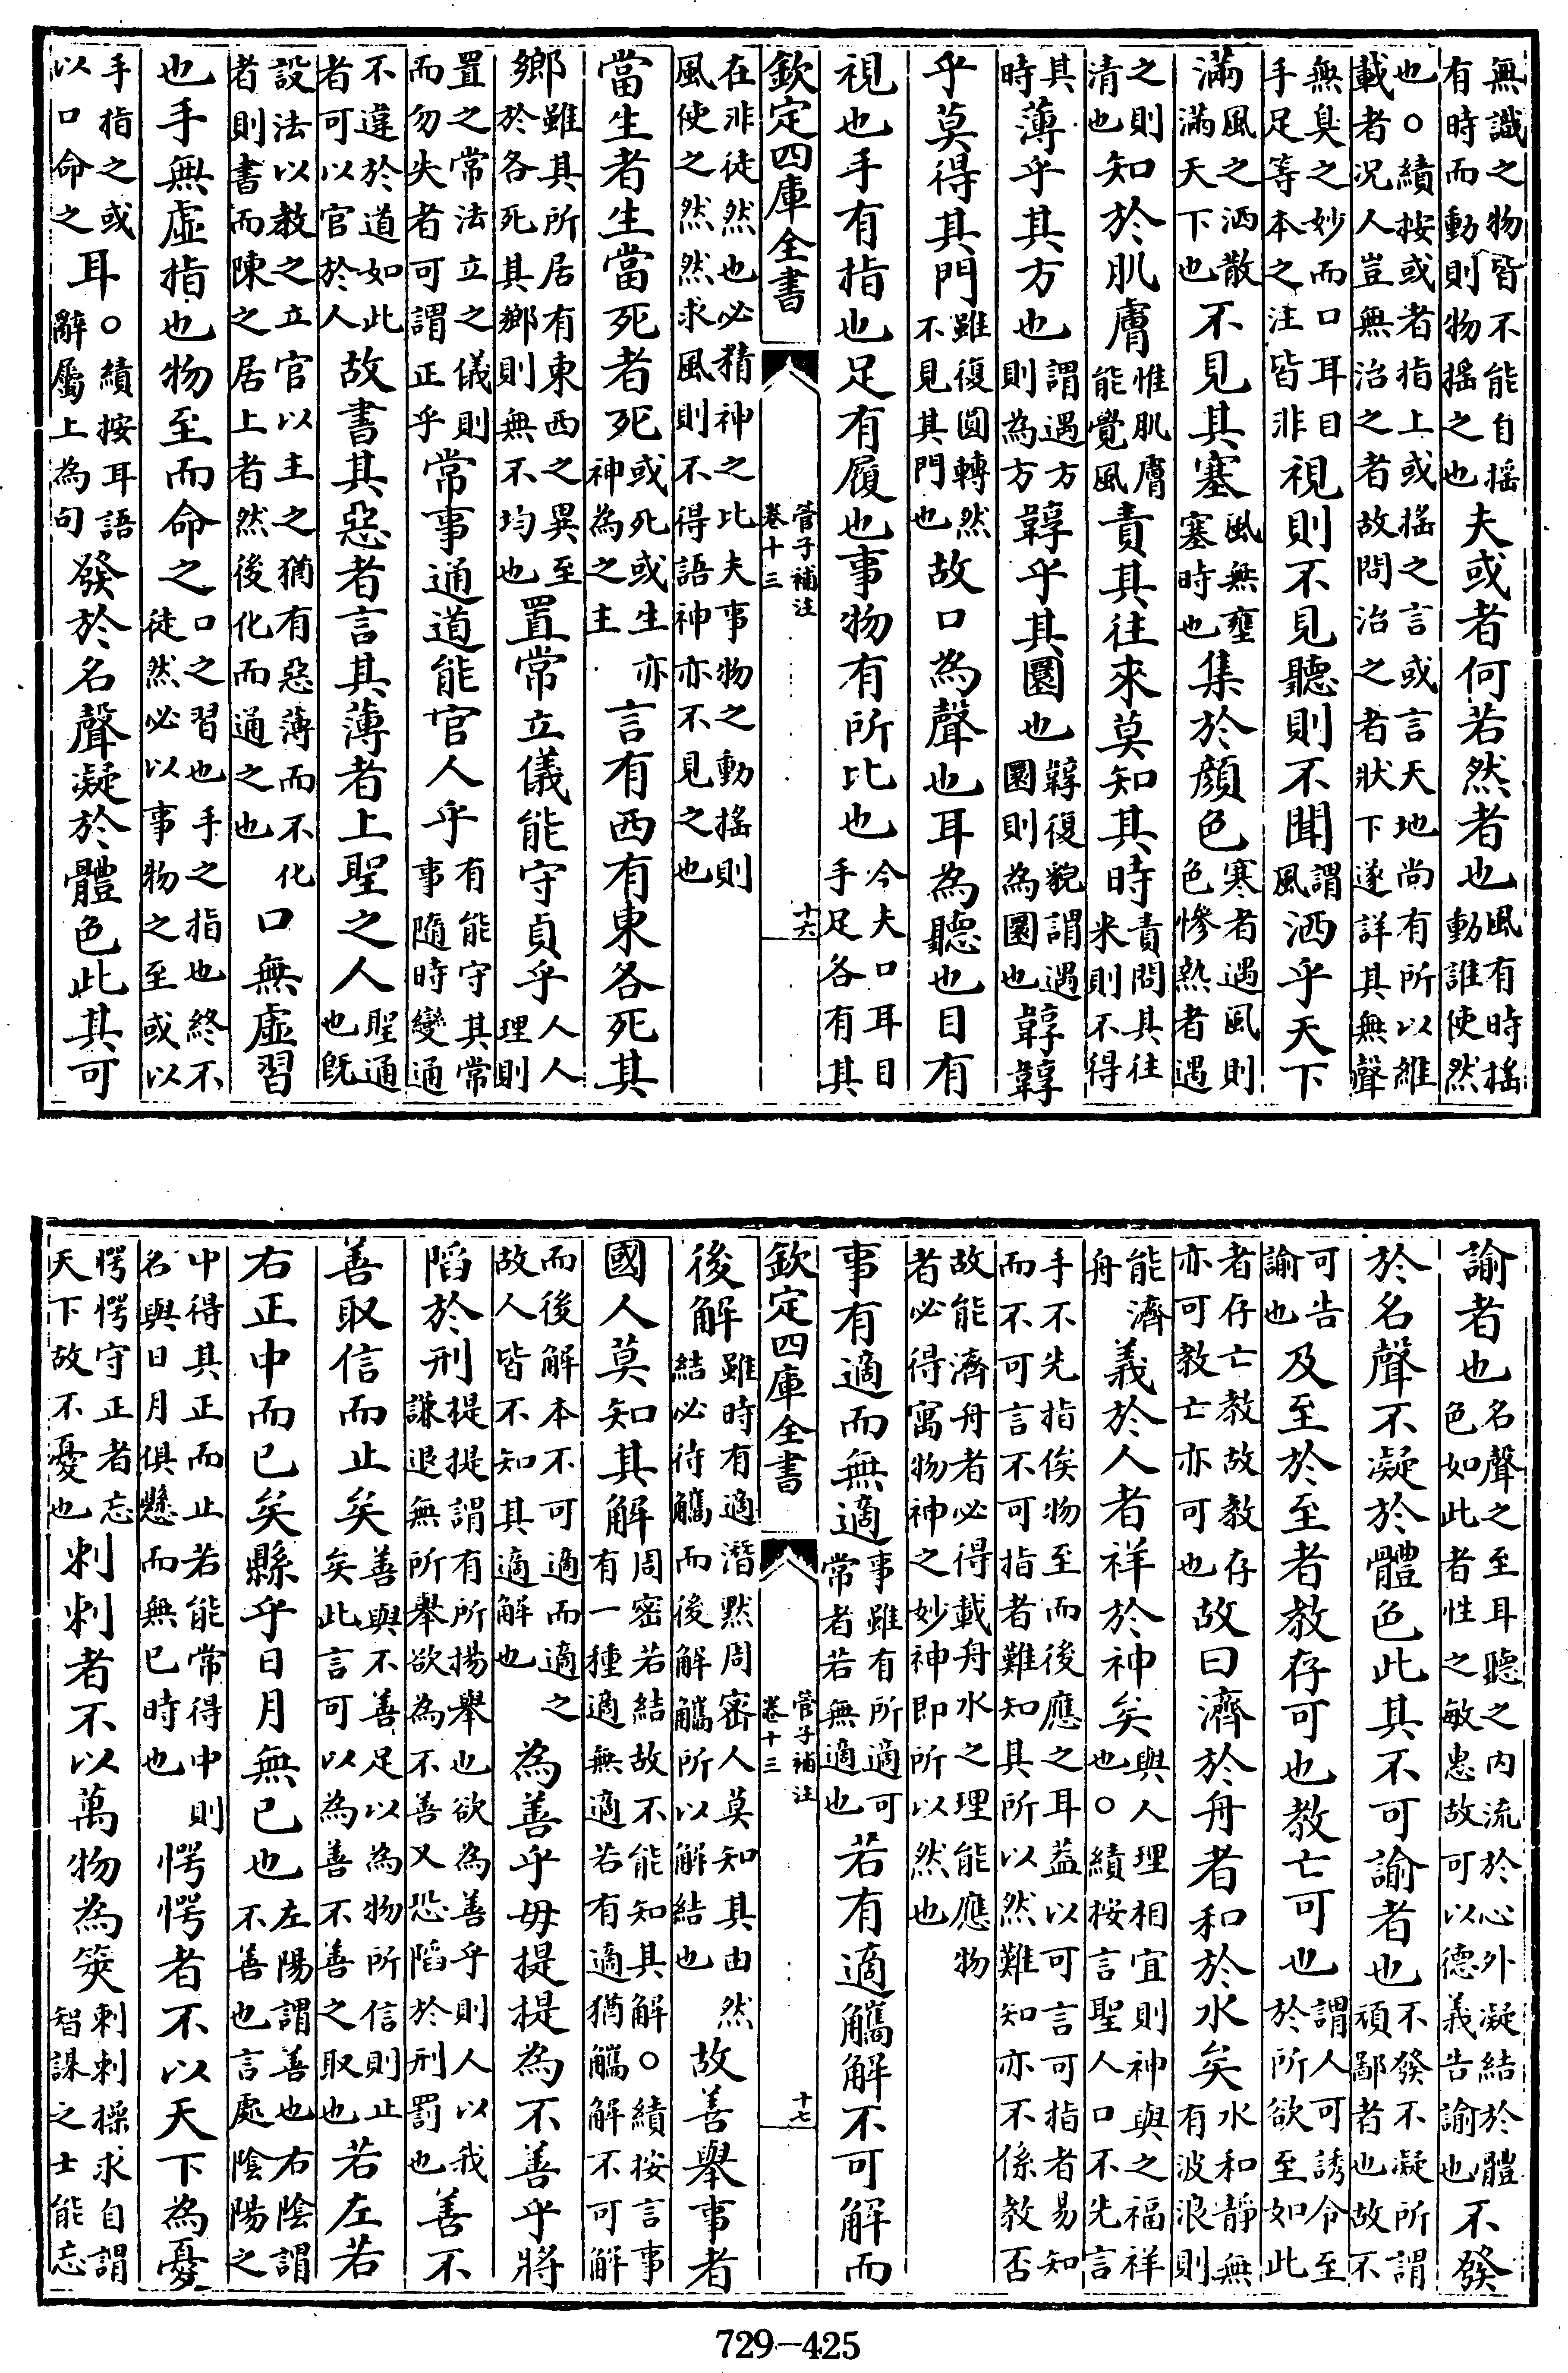 無識之物皆不能自揺有時而動則物揺之也夫或者何若然者也風有時揺動誰使然
也○績按或者指上或揺之言或言天地尚有所以維載者况人豈無治之者故問治之者狀下遂詳其無聲
無臭之妙而口耳目手足等本之注皆非視則不見聽則不聞謂風洒乎天下
滿風之洒散滿天下也不見其塞風無壅塞時也集於顔色寒者遇風則色慘熱者遇
之則清也知於肌膚惟肌膚能覺風責其往來莫知其時責問其往来則不得
其時薄乎其方也謂遇方則為方𩏂乎其圜也𩏂復貌謂遇圜則為圜也𩏂𩏂
乎莫得其門雖復圓轉然不見其門也故口為聲也耳為聽也目有
視也手有指也足有履也事物有所比也今夫口耳目手足各有其
欽定四庫全書 管子補注 卷十三 十六
在非徒然也必猜神之比夫事物之動揺則風使之然然求風則不得語神亦不見之也
當生者生當死者死或死或生亦神為之主言有西有東各死其
鄉雖其所居有東西之異至於各死其鄉則無不均也置常立儀能守貞乎人人理則
置之常法立之儀則而勿失者可謂正乎常事通道能官人乎有能守其常事隨時變通
不違於道如此者可以官於人故書其惡者言其薄者上聖之人聖通也既
設法以教之立官以主之猶有惡薄而不化者則書而陳之居上者然後化而通之也口無虚習
也手無虚指也物至而命之口之習也手之指也終不徒然必以事物之至或以
手指之或以口命之耳○績按耳語辭屬上為句發於名聲凝於體色此其可
諭者也名聲之至耳聽之内流於心外凝結於體色如此者性之敏惠故可以德義告諭也不發
於名聲不凝於體色此其不可諭者也不發不凝所謂頑鄙者也故不
可告諭也及至於至者教存可也教亡可也謂人可誘令至於所欲至如此
者存亡教故教存亦可教亡亦可也故曰濟於舟者和於水矣水和靜無有波浪則
能濟舟義於人者祥於神矣與人理相宜則神與之福祥也○績按言聖人口不先言
手不先指俟物至而後應之耳益以可言可指者易知而不可言不可指者難知其所以然難知亦不係教否
故能濟舟者必得載舟水之理能應物者必得寓物神之妙神即所以然也
事有適而無適事雖有所適可常者若無適也若有適觿解不可解而
欽定四庫全書 管子補注 卷十三 十七
後解雖時有適潛黙周密人莫知其由然結必待觿而後解觿所以解結也故善舉事者
國人莫知其解周密若結故不能知其解○績按言事有一種適無適若有適猶觿解不可解
而後解本不可適而適之故人皆不知其適解也為善乎毋提提為不善乎將
陷於刑提提謂有所揚舉也欲為善乎則人以我謙退無所舉欲為不善又恐陷於刑罰也善不
善取信而止矣善與不善足以為物所信則止矣此言可以為善不善之取也若左若
右正中而已矣縣乎日月無已也左陽謂善也右陰謂不善也言處陰陽之
中得其正而止若能常得中則名與日月俱懸而無已時也愕愕者不以天下為憂
愕愕守正者忘天下故不憂也刺刺者不以萬物為筴刺刺操求自謂智謀之士能忘
729—425